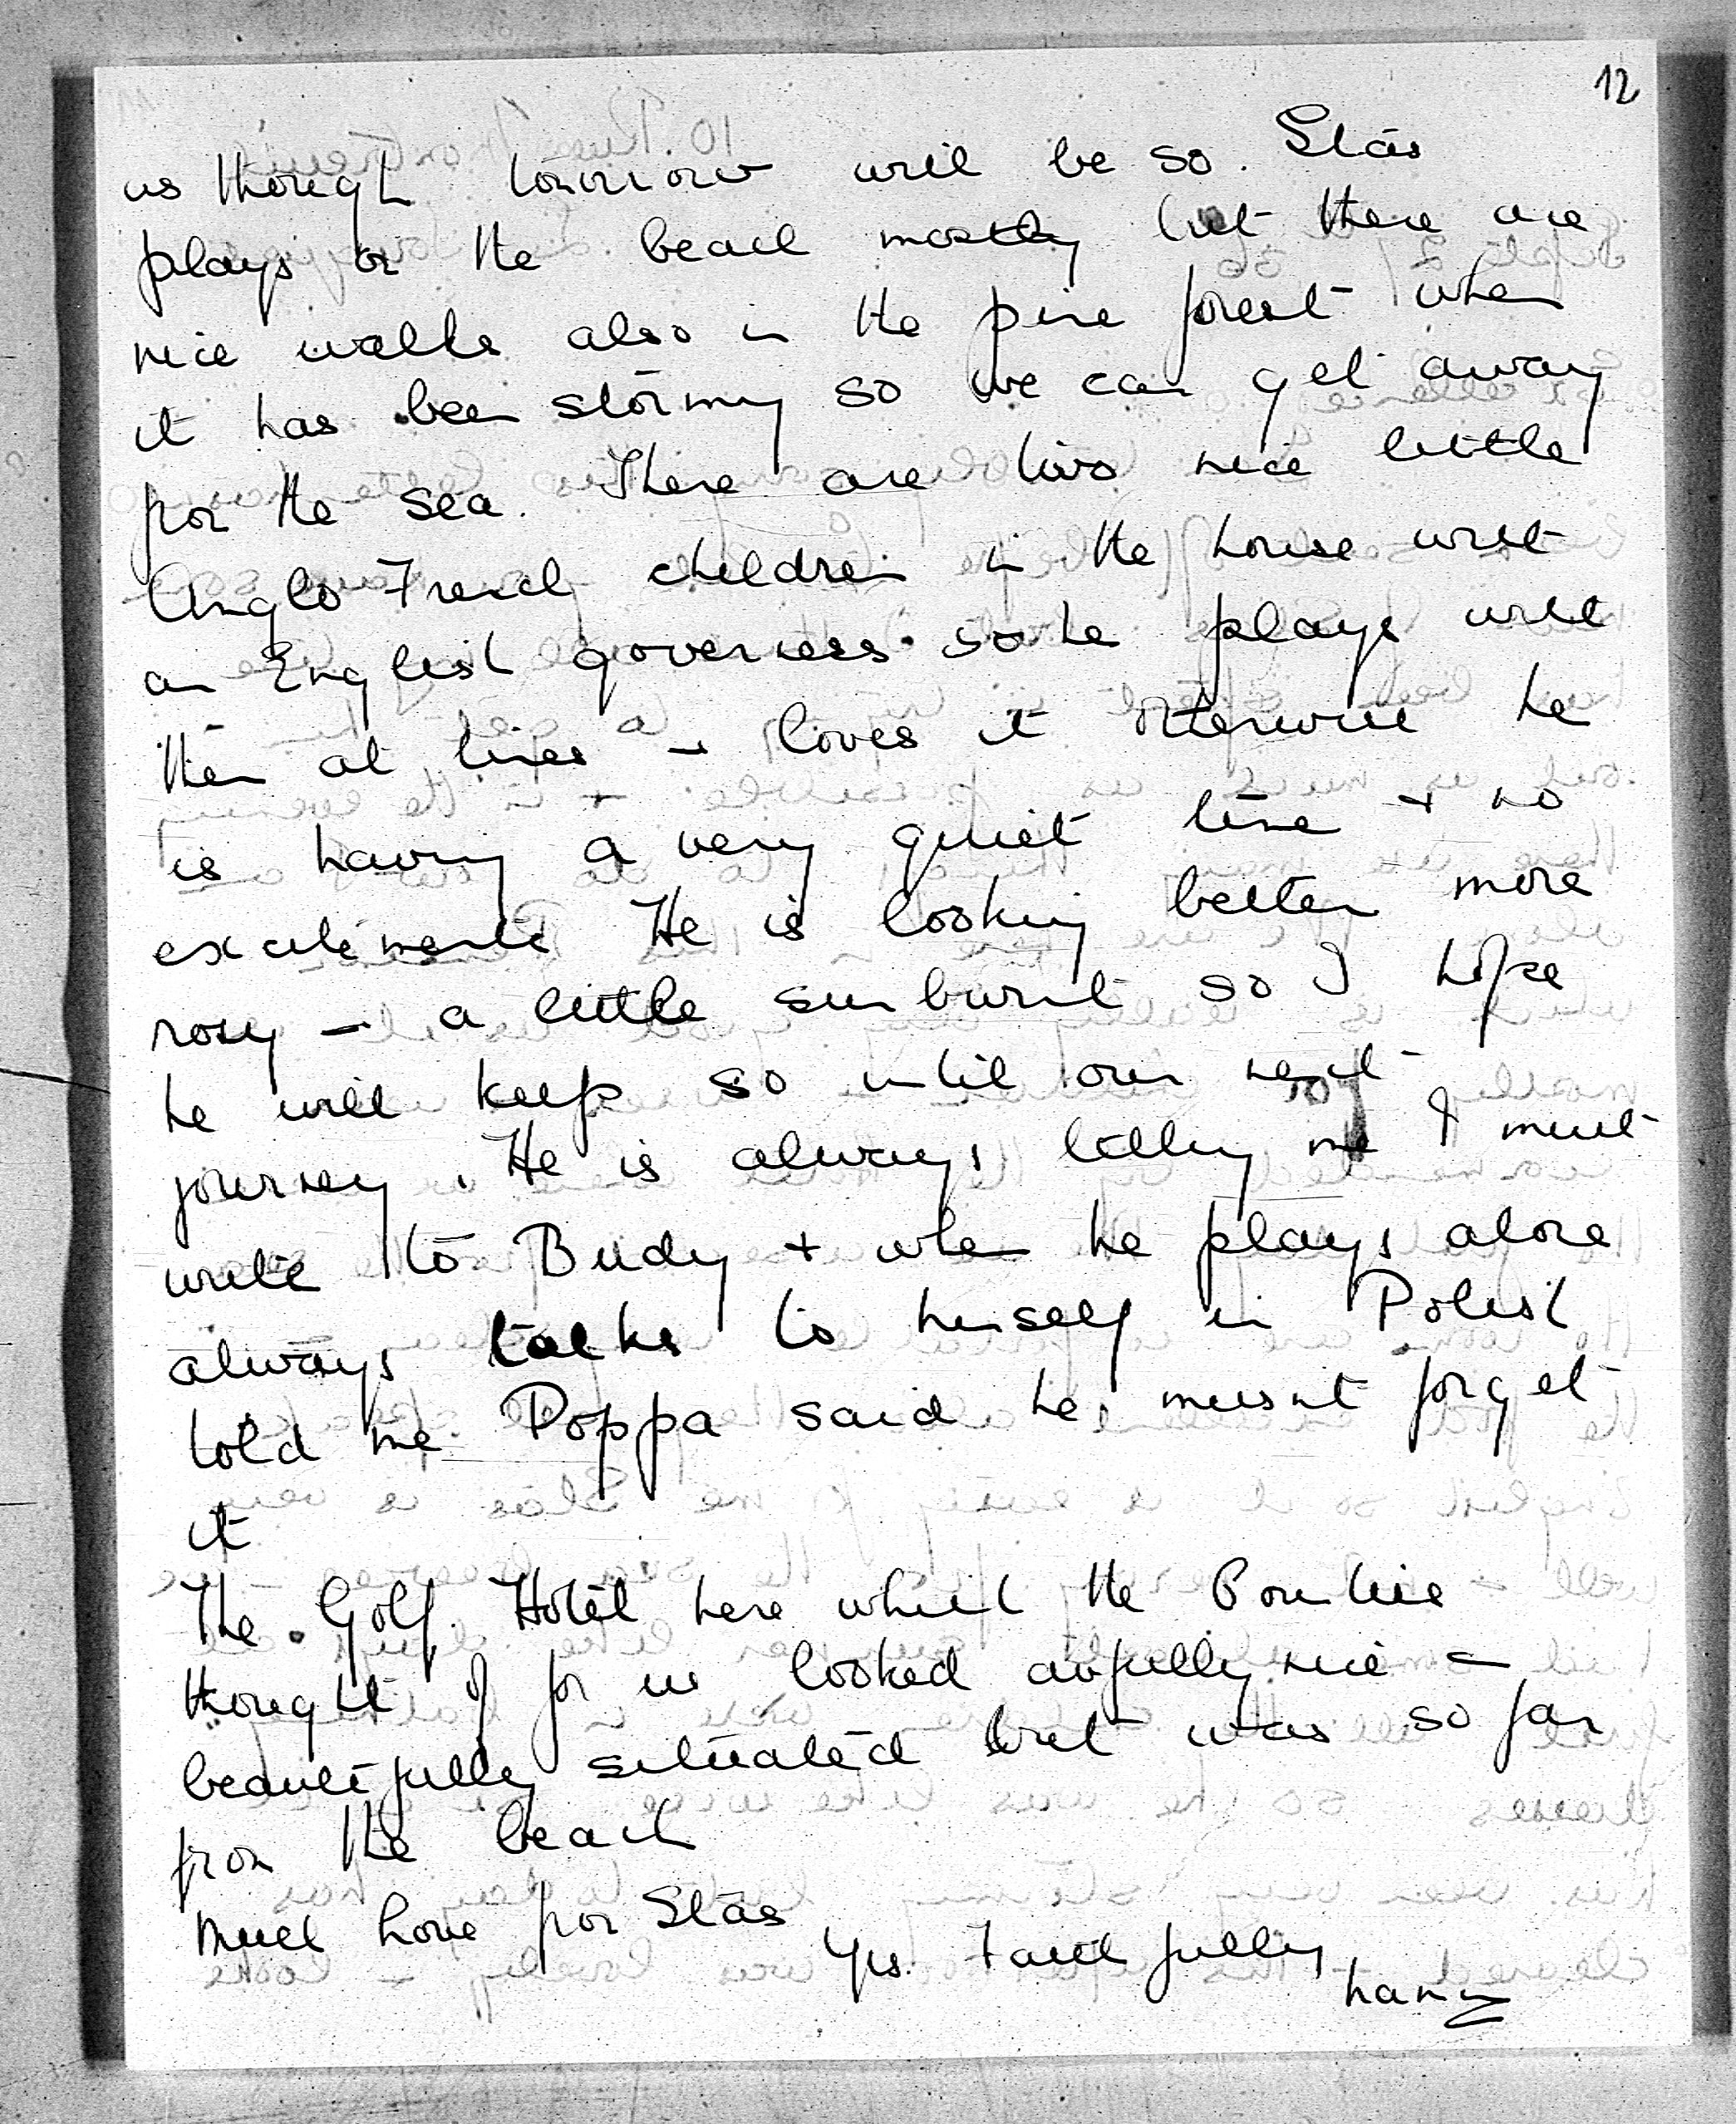 12
as though tomorrow will be so. Stás
plays on the beach mostly but there are
nice walks also in the pine forest when
it has been stormy so we can get away
from the sea. There are two nice little
Anglo French children in the house with
an English governess so he plays with
them at times + loves it otherwise he
is having a very quiet time + no
excitements He is looking better more
rosy + a little sunburnt so I hope
he will keep so until our next
journey. He is always telling me I must
write to Budy + when he plays alone
always talks to himself in Polish
told me Poppa said he musnt forget
it
The Golf Hotel here which the
thought of for us looked awfully nice +
beautifully situated but was so far
from the beach
Much love from Stás
Yrs. Faithfully